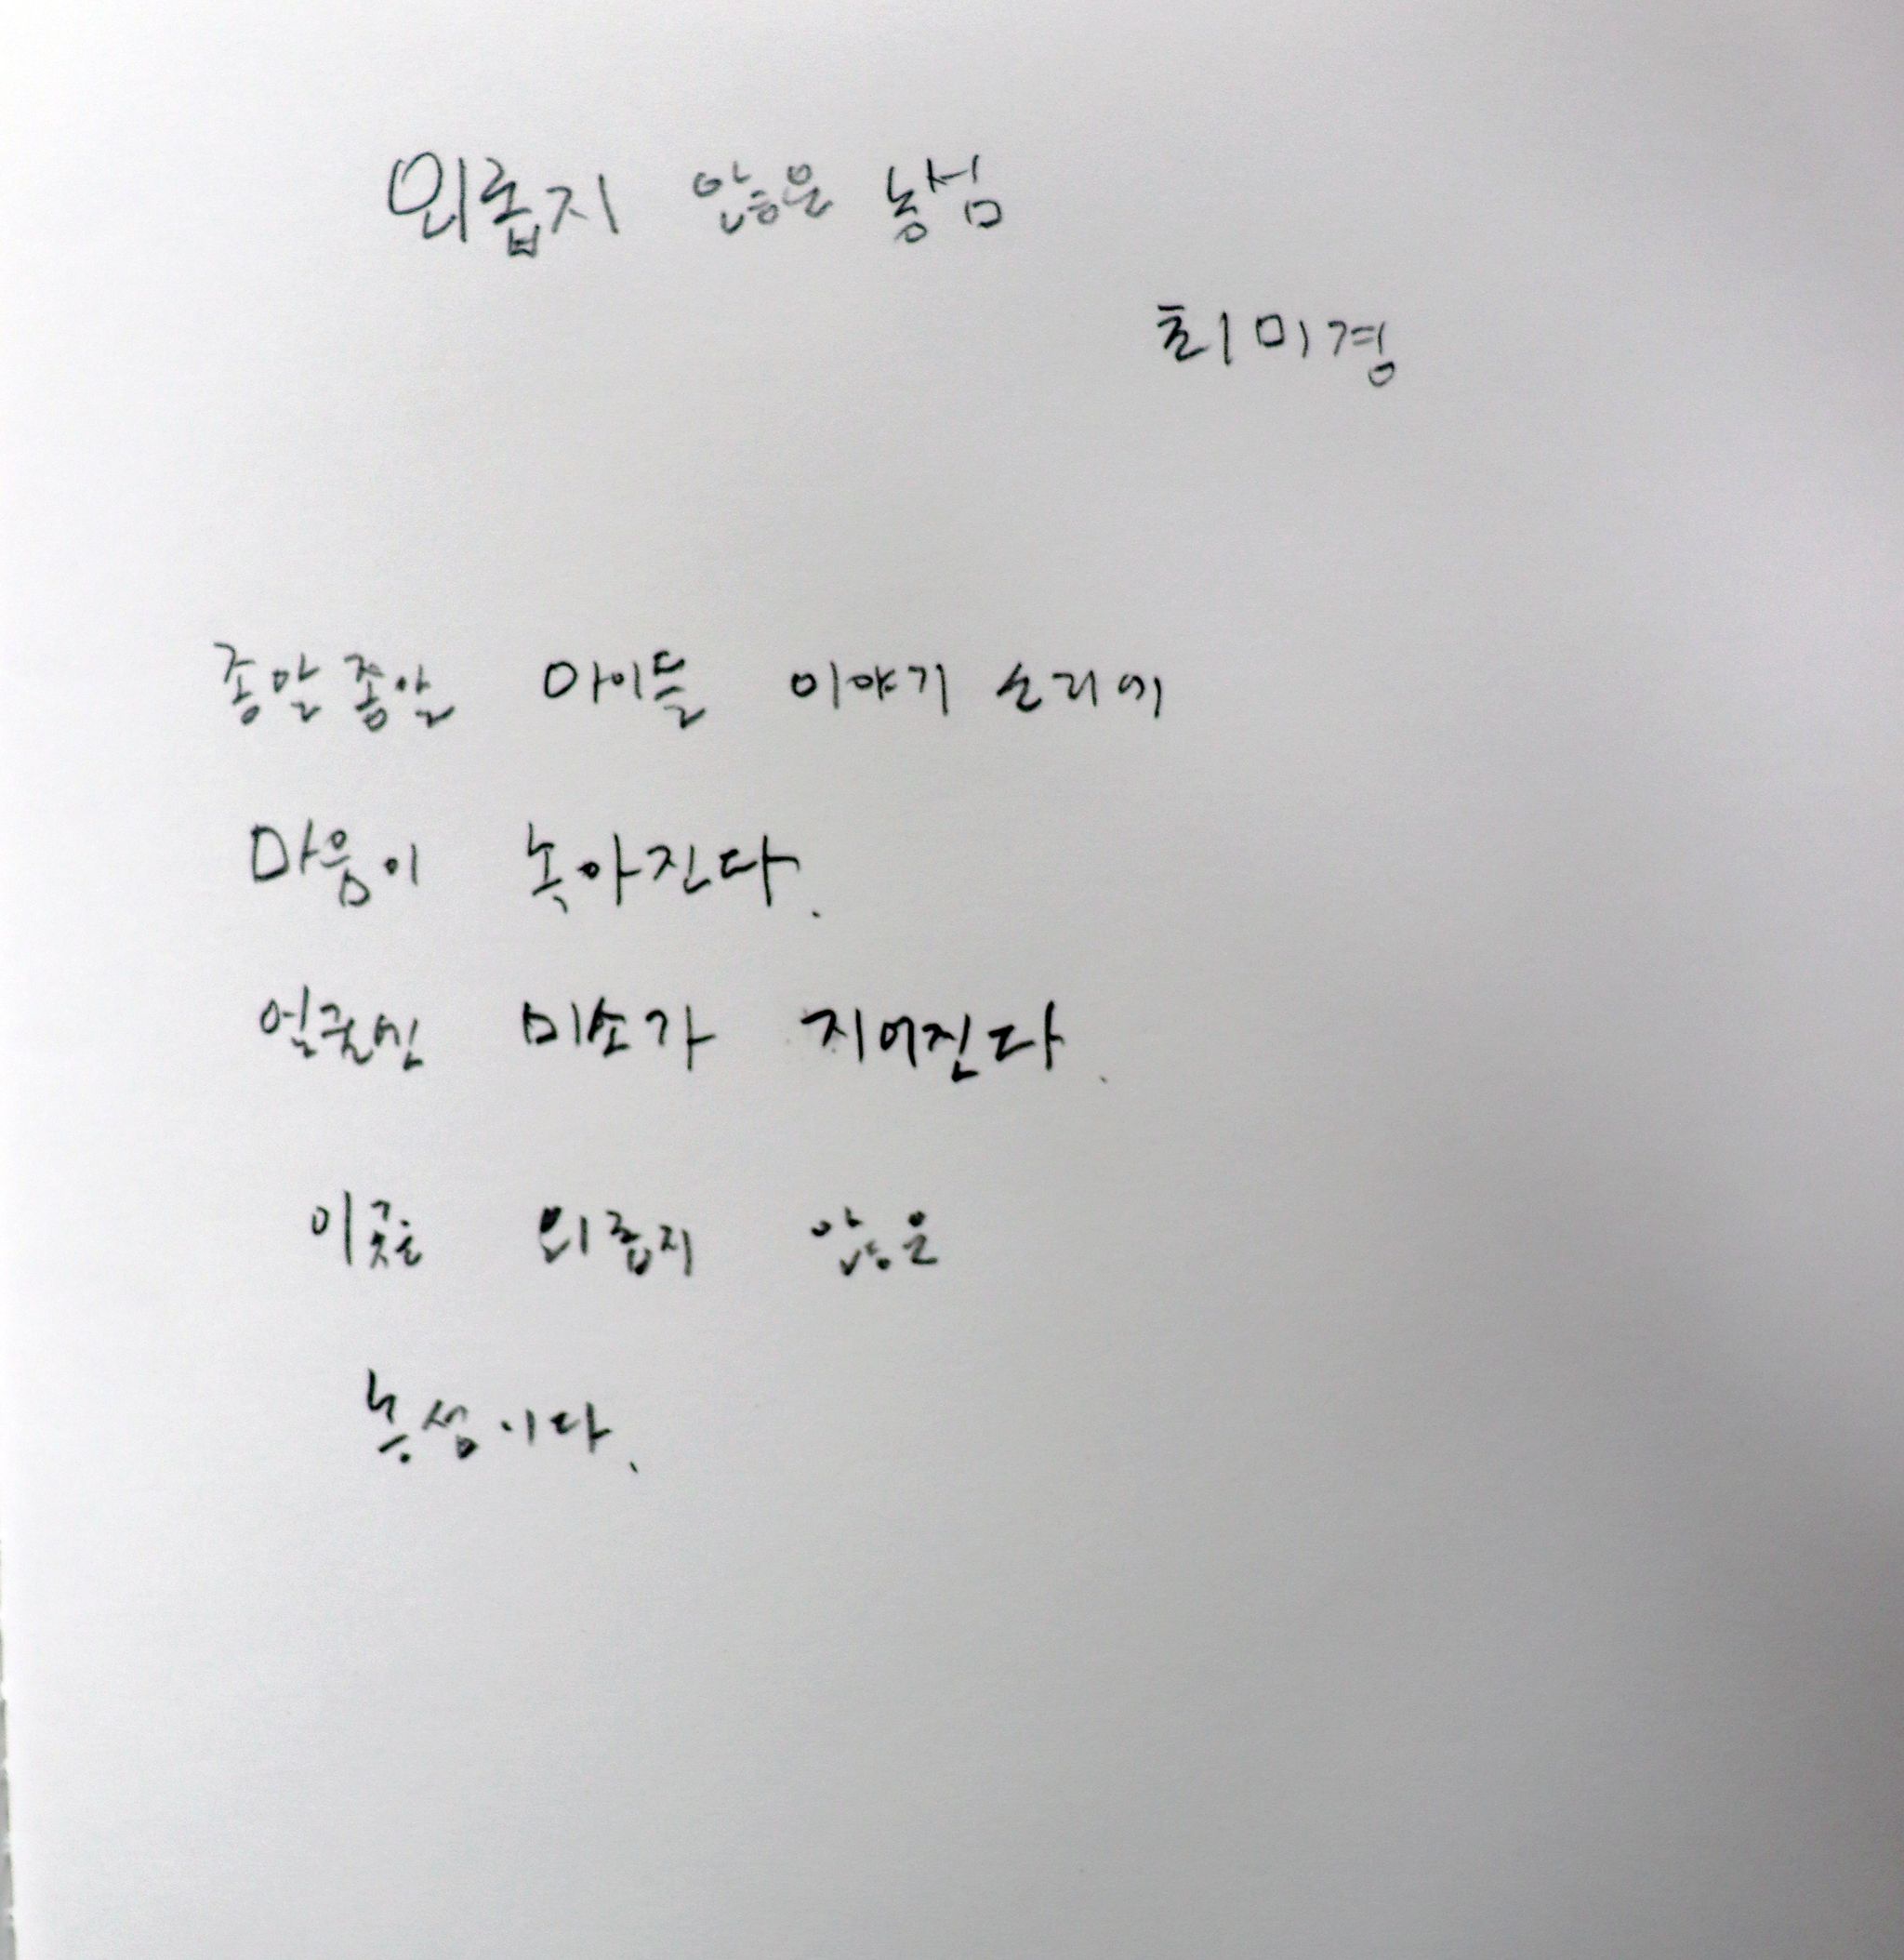 외롭지 않은 농섬
최미경
종알종알 아이들 이야기 소리에
마음이 녹아진다.
얼굴엔 미소가 지어진다.
이곳은 외롭지 않은
농섬이다.